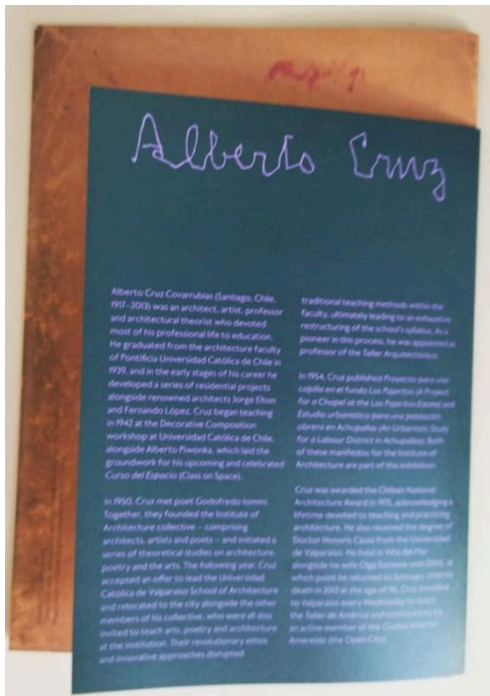 Alberto Cruz
Alberto Cruz Covarrubias (Santiago, Chile,
1917–2013) was an architect, artist, professor
and architectural theorist who devoted
most of his professional life to education.
He graduated from the architecture faculty
of Pontificia Universidad Católica de Chile in
1939, and in the early stages of his career he
developed a series of residential projects
alongside renowned architects Jorge Elton
and Fernando López. Cruz began teaching
in 1942 at the Decorative Composition
workshop at Universidad Católica de Chile,
alongside Alberto Piwonka, which laid the
groundwork for his upcoming and celebrated
Curso del Espacio (Class on Space).
In 1950, Cruz met poet Godofredo Iommi.
Together, they founded the Institute of
Architecture collective – comprising
architects, artists and poets – and initiated a
series of theoretical studies on architecture,
poetry and the arts. The following year, Cruz
accepted an offer to lead the Universidad
Católica de Valparaíso School of Architecture
and relocated to the city alongside the other
members of his collective, who were all also
invited to teach arts, poetry and architecture
at the institution. Their revolutionary ethos
and innovative approaches disrupted
traditional teaching methods within the
faculty, ultimately leading to an exhaustive
restructuring of the school's syllabus. As a
pioneer in this process, he was appointed as
professor of the Taller Arquitectónico.
In 1954, Cruz published Proyecto para una
capilla en el fundo Los Pajaritos (A Project
for a Chapel at the Los Pajaritos Estate) and
Estudio urbanístico para una población
obrera en Achupallas (An Urbanistic Study
for a Labour District in Achupallas). Both
of these manifestos for the Institute of
Architecture are part of this exhibition.
Cruz was awarded the Chilean National
Architecture Award in 1975, acknowledging a
lifetime devoted to teaching and practising
architecture. He also received the degree of
Doctor Honoris Causa from the Universidad
de Valparaíso. He lived in Viña del Mar
alongside his wife Olga Somavía until 2003, at
which point he returned to Santiago. Until his
death in 2013 at the age of 96, Cruz travelled
to Valparaíso every Wednesday to teach
the Taller de América and continued to be
an active member of the Ciudad Abierta
Amereida (the Open City).